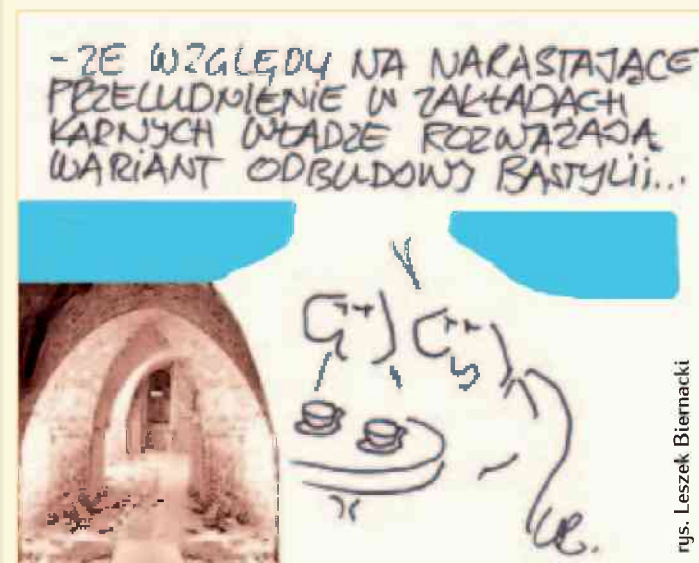 - ZE WZGLĘDU NA NARASTAJĄCE
PRZELUDNIENIE W ZAKŁADACH
KARNYCH WŁADZE ROZWAŻAJĄ
WARIANT ODBUDOWY BASTYLII...
rys. Leszek Biernacki